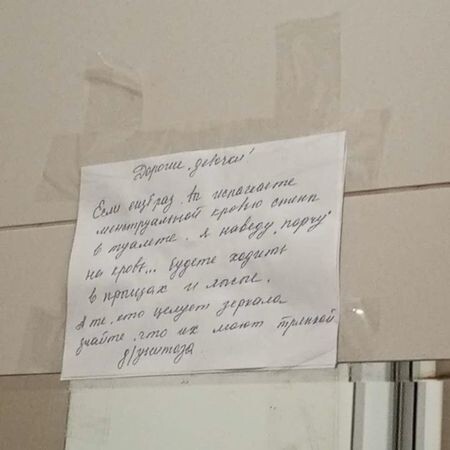 Дорогие девочки!
Если ещё раз вы испачкаете
менструальной кровью стены
в туалете. Я наведу "порчу"
на кровь... будете ходить
в прыщах и лысые.
А те, кто целует зеркала
знайте, что их моют тряпкой
д/унитаза